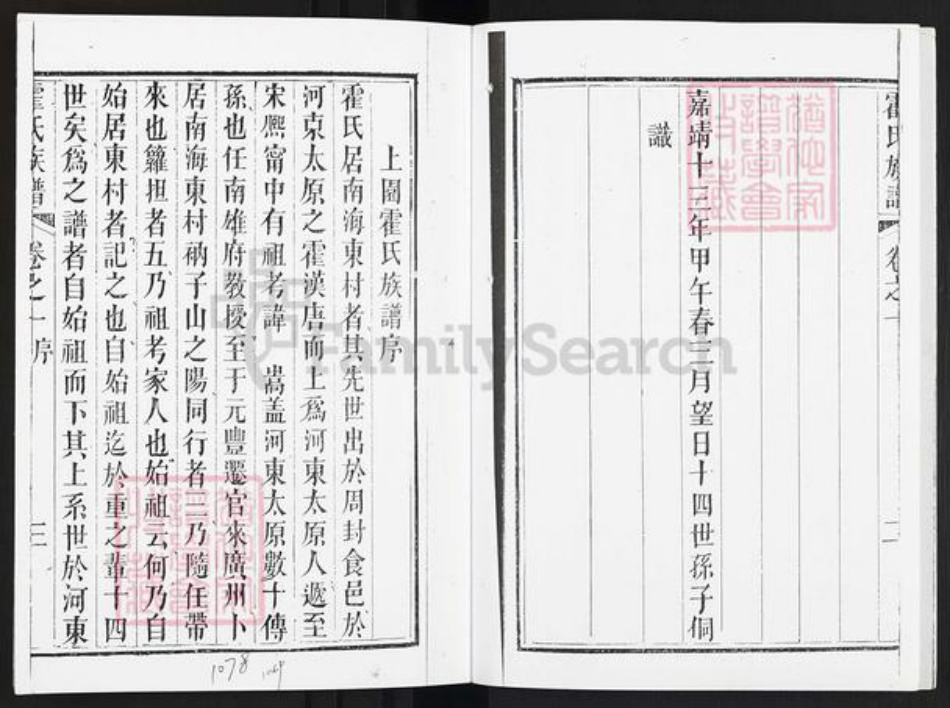 霍氏族譜
卷之一
二
嘉靖十三年甲午春三月望日十四世孫子侗
識
上園霍氏族譜序
霍氏居南海東村者其先世出於周封食邑於
河東太原之霍漢唐而上爲河東太原人遞至
宋熙甯中有祖考諱 嵩蓋河東太原數十傳
孫也任南雄府教授至于元豐遷官來廣州卜
居南海東村衲子山之陽同行者三乃隨任帶
來也籮担者五乃祖考家人也始祖云何乃自
始居東村者記之也自始祖迄於重之輩十四
世矣爲之譜者自始祖而下其上系世於河東
霍氏族譜
卷之一 序
三
1078
FamilySearch